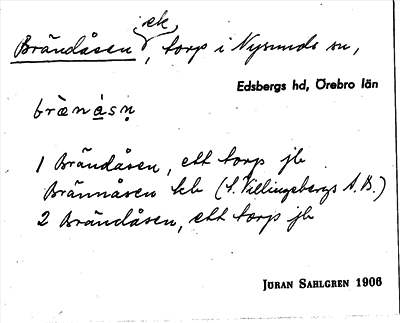 ek.
Brändåsen, torp i Nysunds sn,
Edsbergs hd, Örebro län
bræ̀nå̀sn̥
1 Brändåsen, ett torp jb
Brännåsen kb (S. Villingsbergs A. B.)
2 Brändåsen, ett torp jb
JÖRAN SAHLGREN 1906